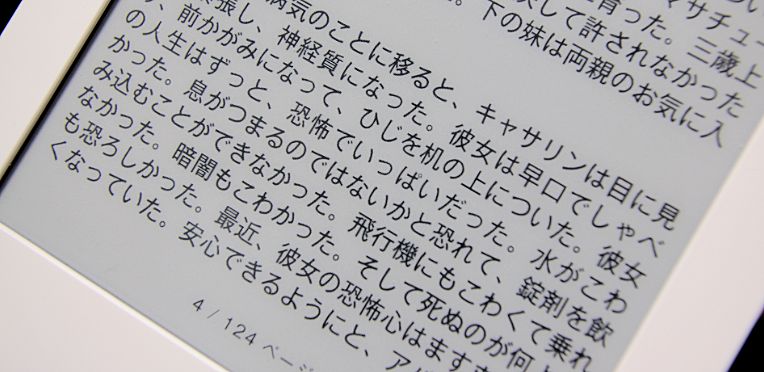 マサチュー
育った。三歳上
して許されなかった
。下の妹は両親のお気に入
病気のことに移ると、キャサリンは目に見
張し、神経質になった。彼女は早口でしゃべ
、前かがみになって、ひじを机の上についた。彼女
の人生はずっと、恐怖でいっぱいだった。水がこわ
かった。息がつまるのではないかと恐れて、錠剤を飲
み込むことができなかった。飛行機にもこわくて乗れ
なかった。暗闇もこわかった。そして死ぬのが何
も恐ろしかった。最近、彼女の恐怖心はますま
くなっていた。安心できるようにと、ア
4 / 124 ページ